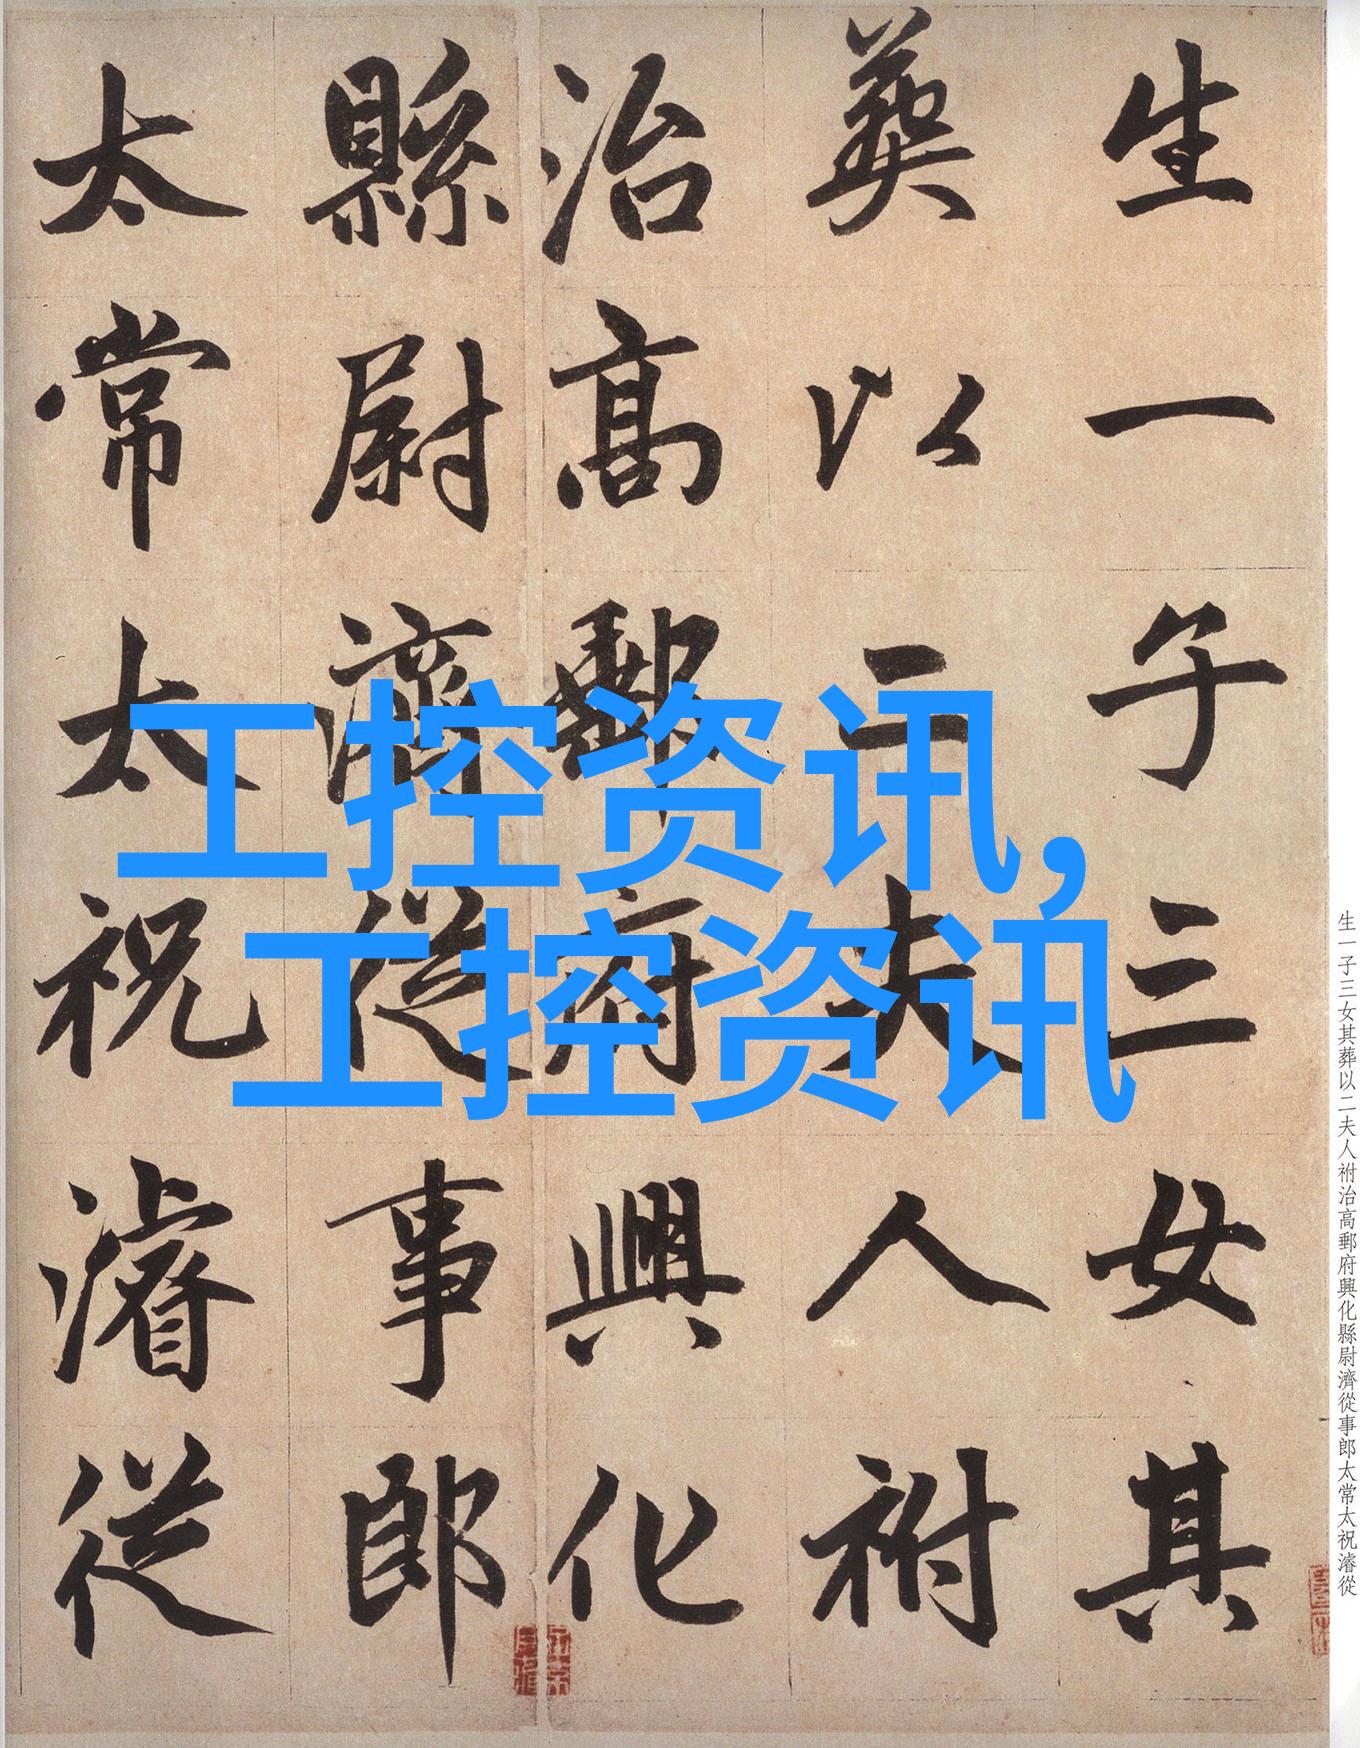 生一子三女其
葬以二夫人祔
治高郵府興化
縣尉濟從事郎
太常太祝濬從
工控资讯，
工控资讯
生一子三女其葬以二夫人祔治高郵府興化縣尉濟從事郎太常太祝濬從